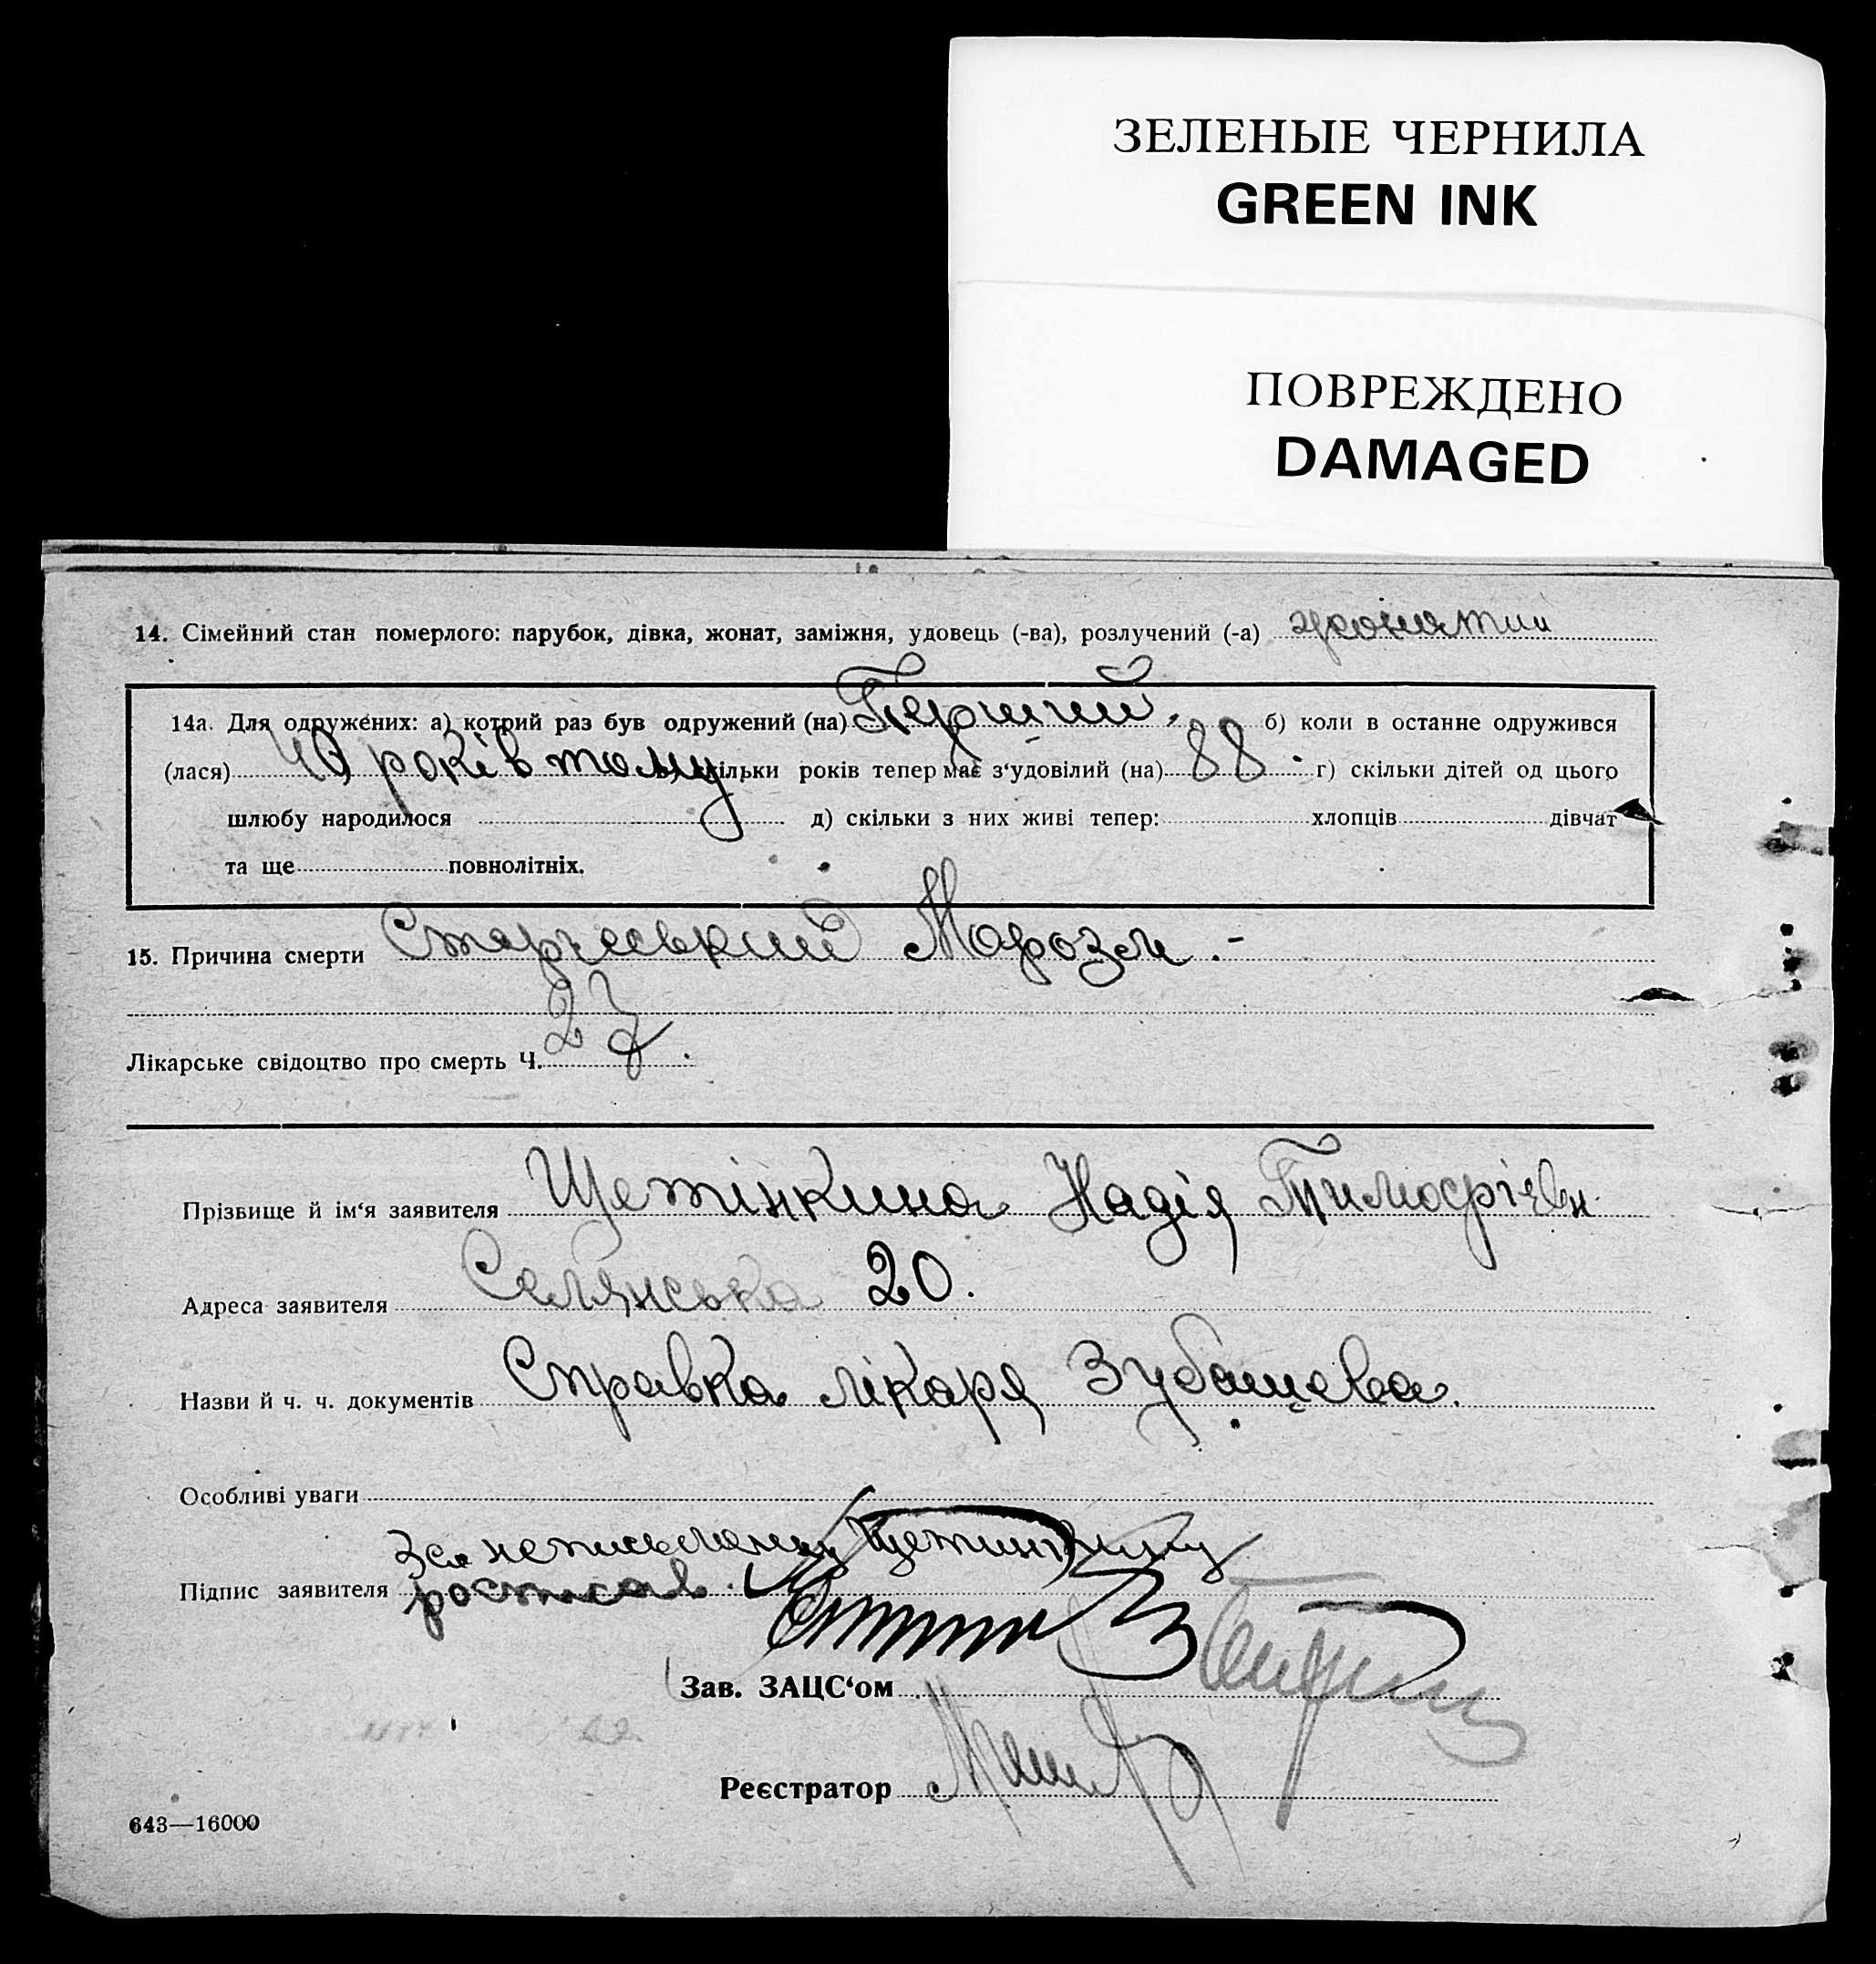 ЗЕЛЕНЫЕ ЧЕРНИЛА
GREEN INK
ПОВРЕЖДЕНО
DAMAGED
14. Сімейний стан померлого: парубок, дівка, жонат, заміжня, удовець (-ва), розлучений (-а) жонатий
14а. Для одружених: а) котрий раз був одружений (на) Перший. б) коли в останне одружився
(лася) 40 років тому скільки років тепер має з‘удовілий (на) 88. г) скільки дітей од цього
шлюбу народилося д) скільки з них живі тепер: хлопців дівчат
та ще повнолітніх.
15. Причина смерти Старческий Марозм.-
Лікарське свідоцтво про смерть Ч. 27.
Прізвище й ім‘я заявителя Щетінкина Надія Тимофієвн.
Адреса заявителя Селянська 20.
Назви й ч. ч. документів Справка лікаря Зубащева.
Особливі уваги
За неписьменну Щетинкину
Підпис заявителя росписав.
Зав. ЗАЦС‘ом
Реєстратор
643—16000